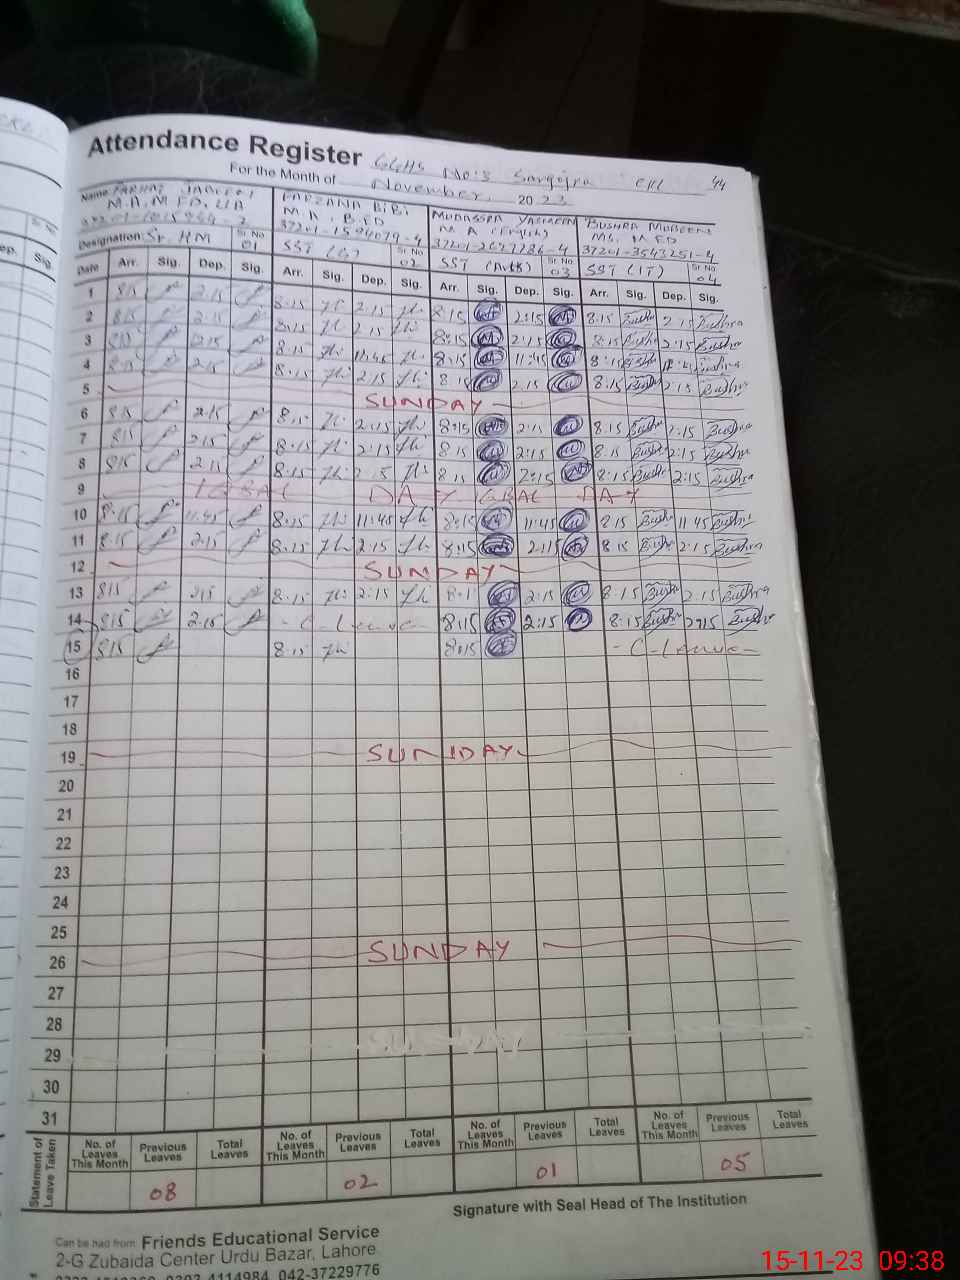 Attendance Register GGHS No:3
For the Month of November, 2023
44
Name FARHAT
M.A, M ED,
Designation: Sr. HM Sr. No 01
FARZANA BiBi
M.A, B.ED
SST (G) Sr. No 02
MUDASSRA YASMEEN
M A (English)
SST (Arts) Sr. No 03
BUSHRA MUBEEN
MSc, M ED
37201-3543251-4
SST (IT) Sr. No 04
Date Arr. Sig. Dep. Sig. Arr. Sig. Dep. Sig. Arr. Sig. Dep. Sig. Arr. Sig. Dep. Sig.
1 8:15 2:15 8:15 2:15 8:15 2:15 8:15 Bushra 2:15 Bushra
2 8:15 2:15 8:15 2:15 8:15 2:15 8:15 Bushra 2:15 Bushra
3 8:15 8:15 11:45 8:15 11:45 8:15 Bushra Bushra
4 8:15 2:15 8:15 2:15 8:15 2:15 8:15 Bushra 2:15 Bushra
5 SUNDAY
6 8:15 2:15 8:15 2:15 8:15 2:15 8:15 Bushra 2:15 Bushra
7 8:15 2:15 8:15 2:15 8:15 2:15 8:15 Bushra 2:15 Bushra
8 8:15 2:15 8:15 2:15 8:15 2:15 8:15 Bushra 2:15 Bushra
9 IQBAL DAY IQBAL DAY
10 8:15 11:45 8:15 11:45 8:15 11:45 8:15 Bushra 11:45 Bushra
11 8:15 2:15 8:15 2:15 8:15 2:15 8:15 Bushra 2:15 Bushra
12 SUNDAY
13 8:15 2:15 8:15 2:15 2:15 8:15 Bushra 2:15 Bushra
14 8:15 2:15 - C - Leave - 8:15 2:15 8:15 Bushra 2:15 Bushra
15 8:15 8:15 8:15 - C - Leave -
16
17
18
19 SUNDAY
20
21
22
23
24
25
26 SUNDAY
27
28
29
30
31
Statement of Leave Taken
No. of Leaves This Month Previous Leaves Total Leaves No. of Leaves This Month Previous Leaves Total Leaves No. of Leaves This Month Previous Leaves Total Leaves No. of Leaves This Month Previous Leaves Total Leaves
08 02 01 05
Signature with Seal Head of The Institution
Can be had from: Friends Educational Service
2-G Zubaida Center Urdu Bazar, Lahore
4114984, 042-37229776
15-11-23 09:38